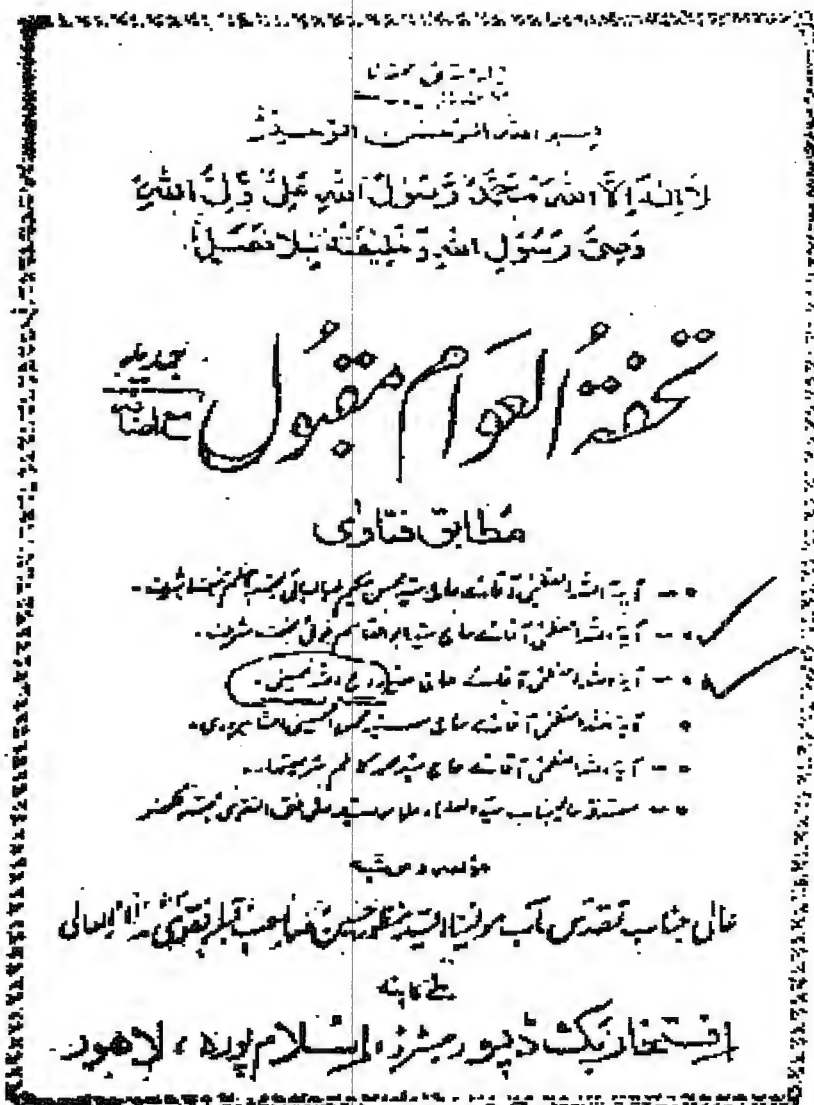 بسم الله الرحمن الرحيم
لَا اِلٰهَ اِلَّا اللّٰهُ مُحَمَّدٌ رَّسُوْلُ اللّٰهِ عَلِيٌّ وَّلِيُّ اللّٰهِ
وَصِيُّ رَسُوْلِ اللّٰهِ وَخَلِيْفَتُهٗ بِلَا فَصْلٍ
تحفۃ العوام مقبول جدید
مع اضافہ
مطابق فتاوٰی
آیۃ اللہ العظمٰی آقائے حاج سید محسن حکیم طباطبائی مجتہد اعظم نجف اشرف۔
آیۃ اللہ العظمٰی آقائے حاج سید ابوالقاسم خوئی نجف اشرف۔
آیۃ اللہ العظمٰی آقائے حاج سید روح اللہ خمینی۔
آیۃ اللہ العظمٰی آقائے حاج سید محمود الحسینی الشاہرودی۔
آیۃ اللہ العظمٰی آقائے حاج سید محمد کاظم شریعتمدار۔
مصدقہ عالیجناب سید العلماء علامہ سید علی نقی النقوی مجتہد لکھنؤ
مؤلفہ و مرتبہ
عالی جناب تقدس مآب مولینا السید منظور حسین صاحب قبلہ نقوی مد ظلہ العالی
ملنے کا پتہ
افتخار بک ڈپو رجسٹرڈ، اسلام پورہ، لاہور